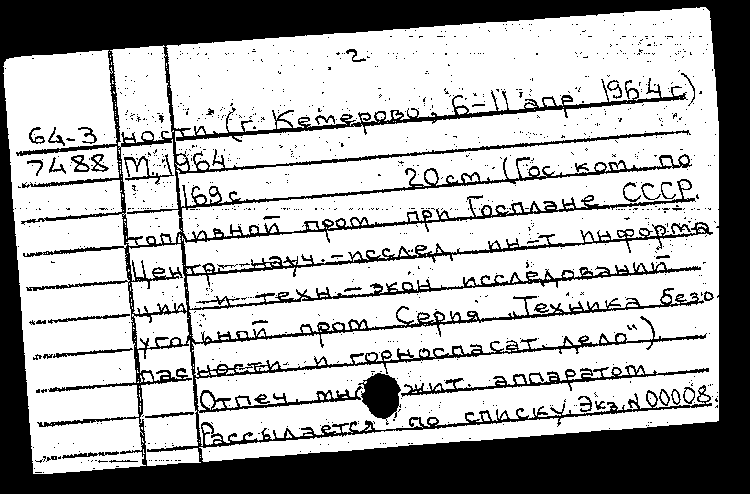 2
64-3 ности. (г. Кемерово, 6-11 апр. 1964 г).
7488 М., 1964.
169 с. 20 см. (Гос. ком. по
топливной пром. при Госплане СССР.
Центр. науч.-исслед. ин-т информа
ции и техн.-экон. исследований
угольной пром Серия „Техника безо
пасности и горноспасат. дело").
Отпеч. мн жит. аппаратом.
Рассылается по списку. Экз. N 00008.